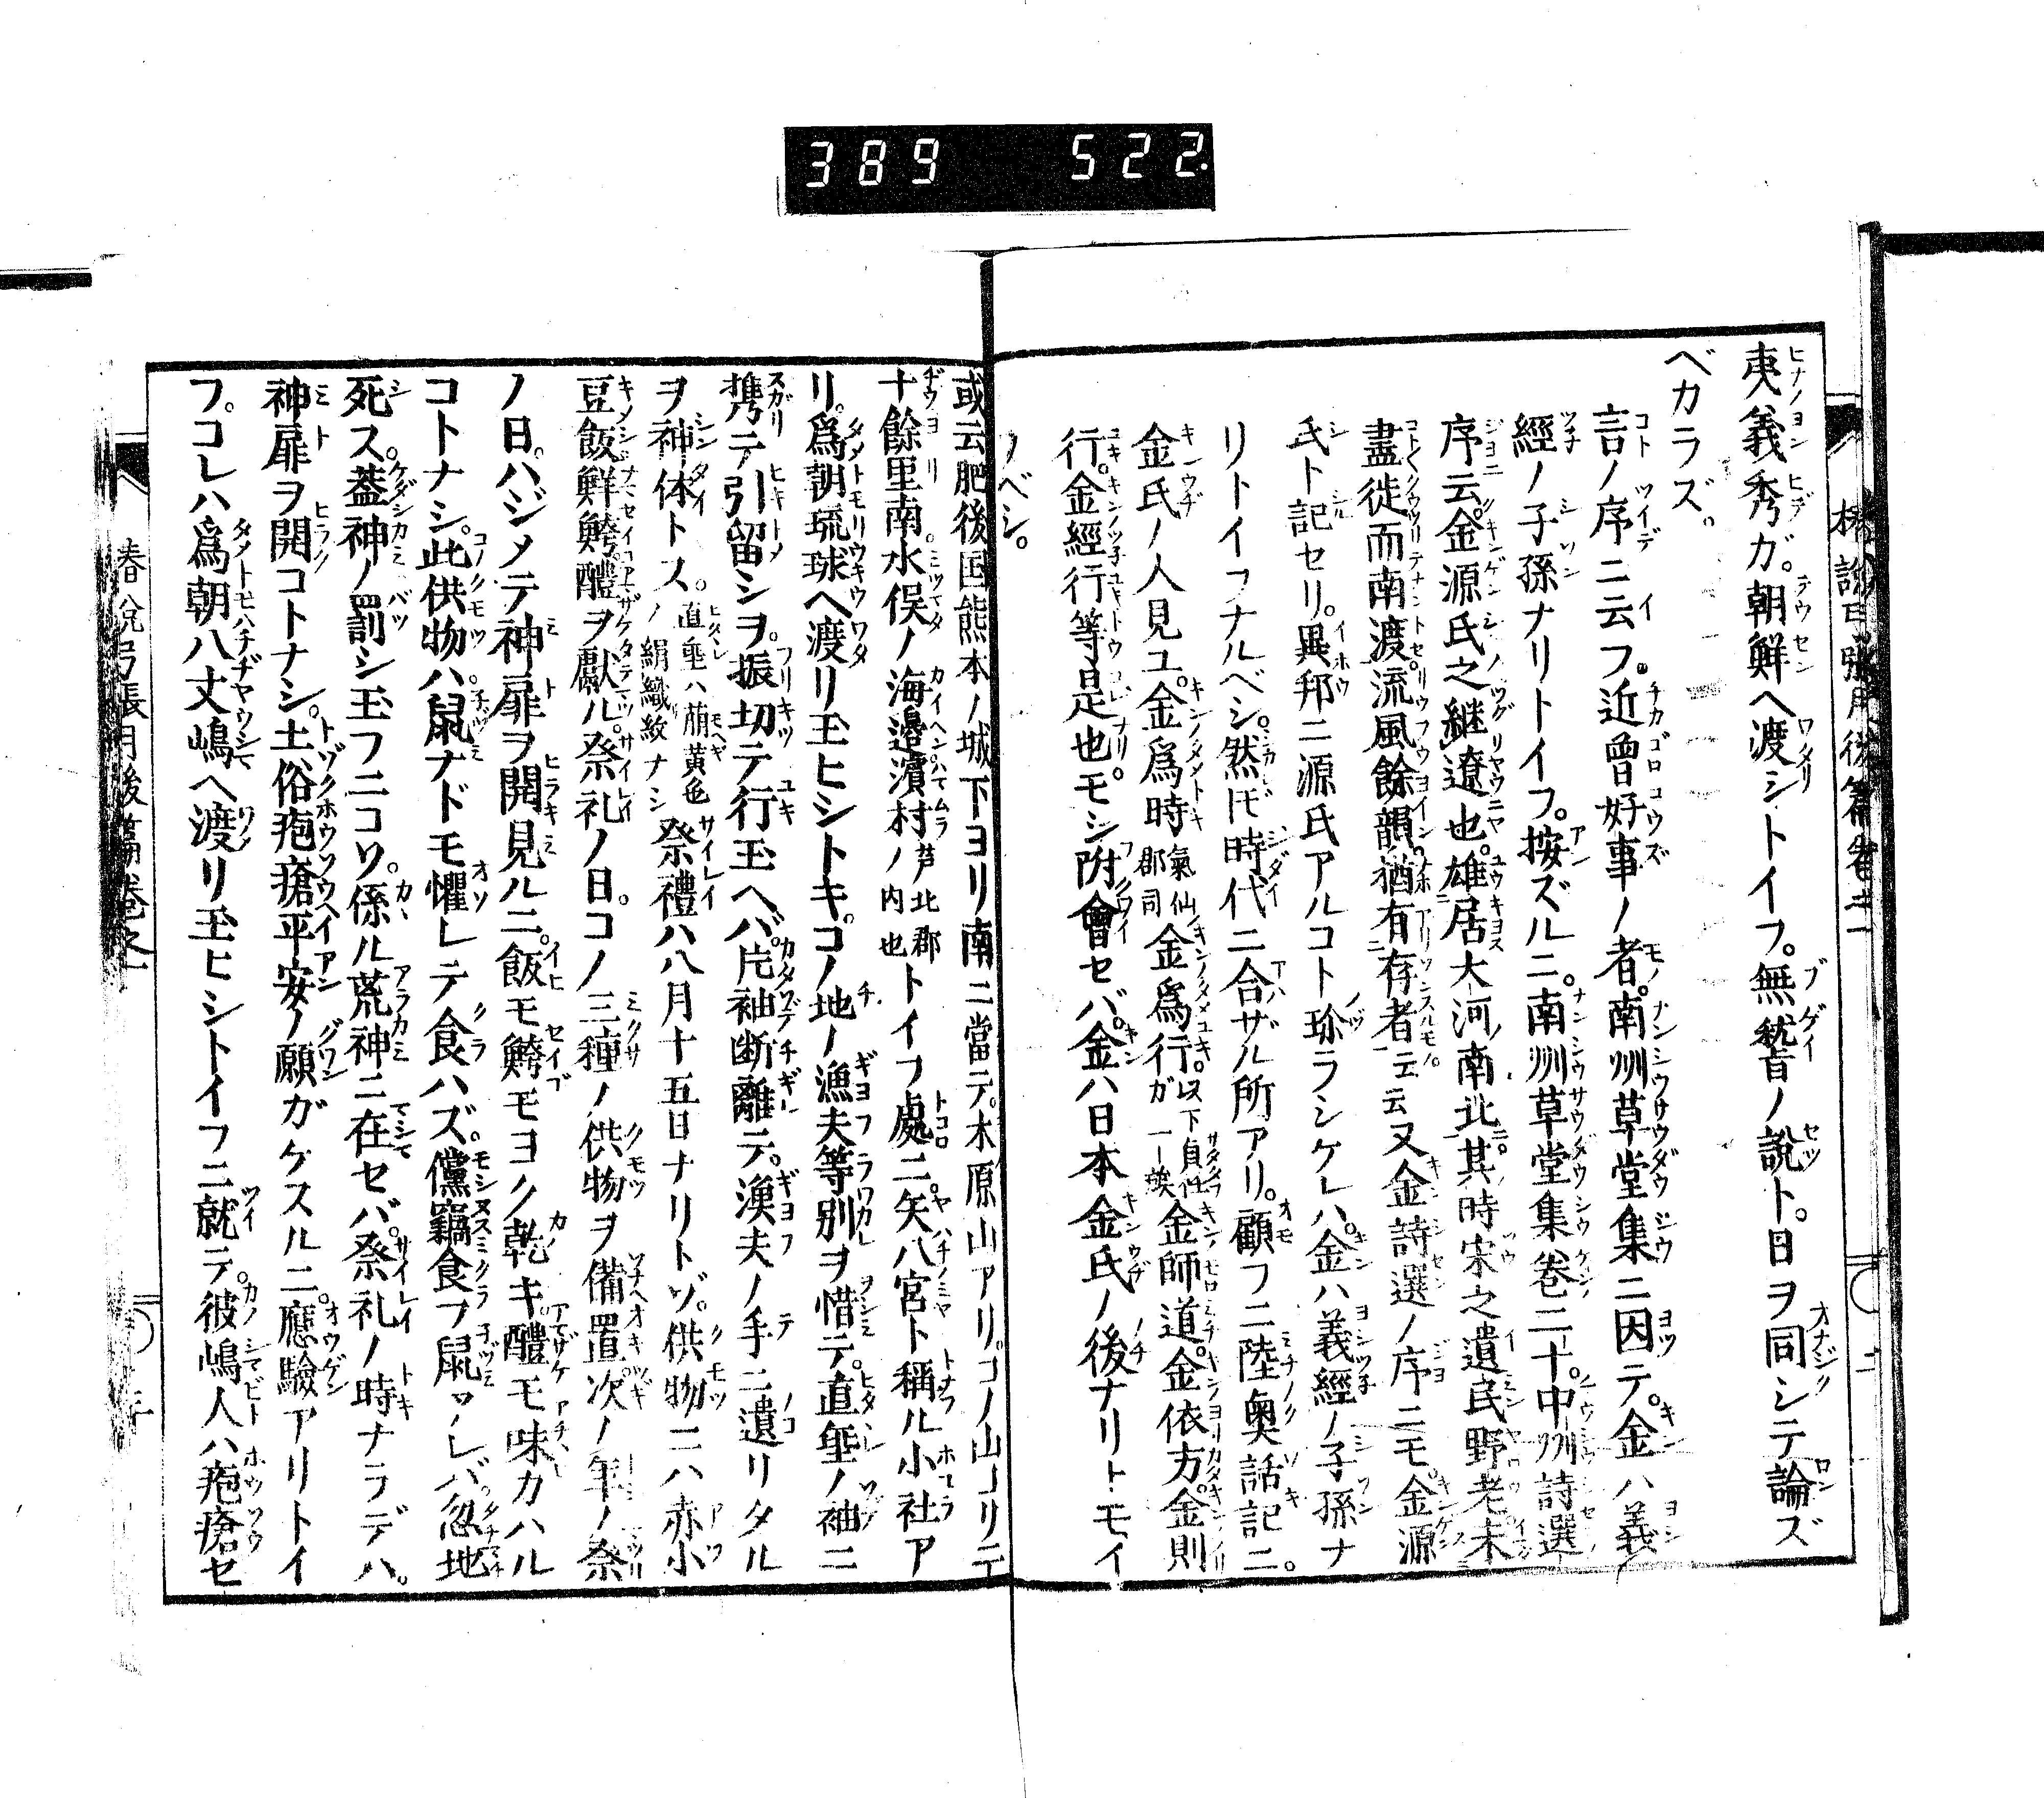 389 522.
夷義秀ガ。朝鮮ヘ渡シトイフ。無稽ノ説ト。日ヲ同シテ論ズ
ベカラズ。
言ノ序ニ云フ。近曾好事ノ者。南洲草堂集ニ因テ。金ハ義
經ノ子孫ナリトイフ。按ズルニ。南洲草堂集卷二十。中州詩選
序云。金源氏之継遼也。雄居大河南北。其時宋之遺民野老未
盡徙而南渡。流風餘韻。猶有存者云云又金詩選ノ序ニモ。金源
氏ト記セリ。異邦ニ源氏アルコト珍ラシケレハ。金ハ義經ノ子孫ナ
リトイフナルベシ。然𪜈時代ニ合ザル所アリ。顧フニ陸奥話記ニ。
金氏ノ人見ユ。金爲時氣仙郡司金爲行。以下貞任ガ一族金師道。金依方。金則
行。金經行等是也。モシ附會セバ。金ハ日本金氏ノ後ナリトモイ
フベシ。
或云肥後国熊本ノ城下ヨリ南ニ當テ。木原山アリ。コノ山ヨリ二
十餘里南水俣ノ海邉濵村ノ芦北郡内也トイフ處ニ。矢八宮ト稱ル小社ア
リ。爲朝琉球ヘ渡リ玉ヒシトキ。コノ地ノ漁夫等別ヲ惜テ。直垂ノ袖ニ
携テ引留シヲ。振切テ行玉ヘバ。片袖断離テ。漁夫ノ手ニ遺リタル
ヲ神体トス。直垂ハ萠黄色ノ絹織紋ナシ祭禮ハ八月十五日ナリトゾ。供物ニハ赤小
豆飯鮮鮬。醴ヲ獻ル。祭礼ノ日。コノ三種ノ供物ヲ備置。次ノ年ノ祭
ノ日。ハジメテ神扉ヲ開見ルニ。飯モ鮬モヨク乾キ。醴モ味カハル
コトナシ。此供物ハ。鼠ナドモ懼レテ食ハズ。儻竊食フ鼠アレバ。忽地
死ス。葢神ノ罰シ玉フニコソ。係ル荒神ニ在セバ。祭礼ノ時ナラデハ。
神扉ヲ開コトナシ。土俗疱瘡平安ノ願ガケスルニ。應驗アリトイ
フ。コレハ爲朝八丈嶋ヘ渡リ玉ヒシトイフニ就テ。彼嶋人ハ疱瘡セ